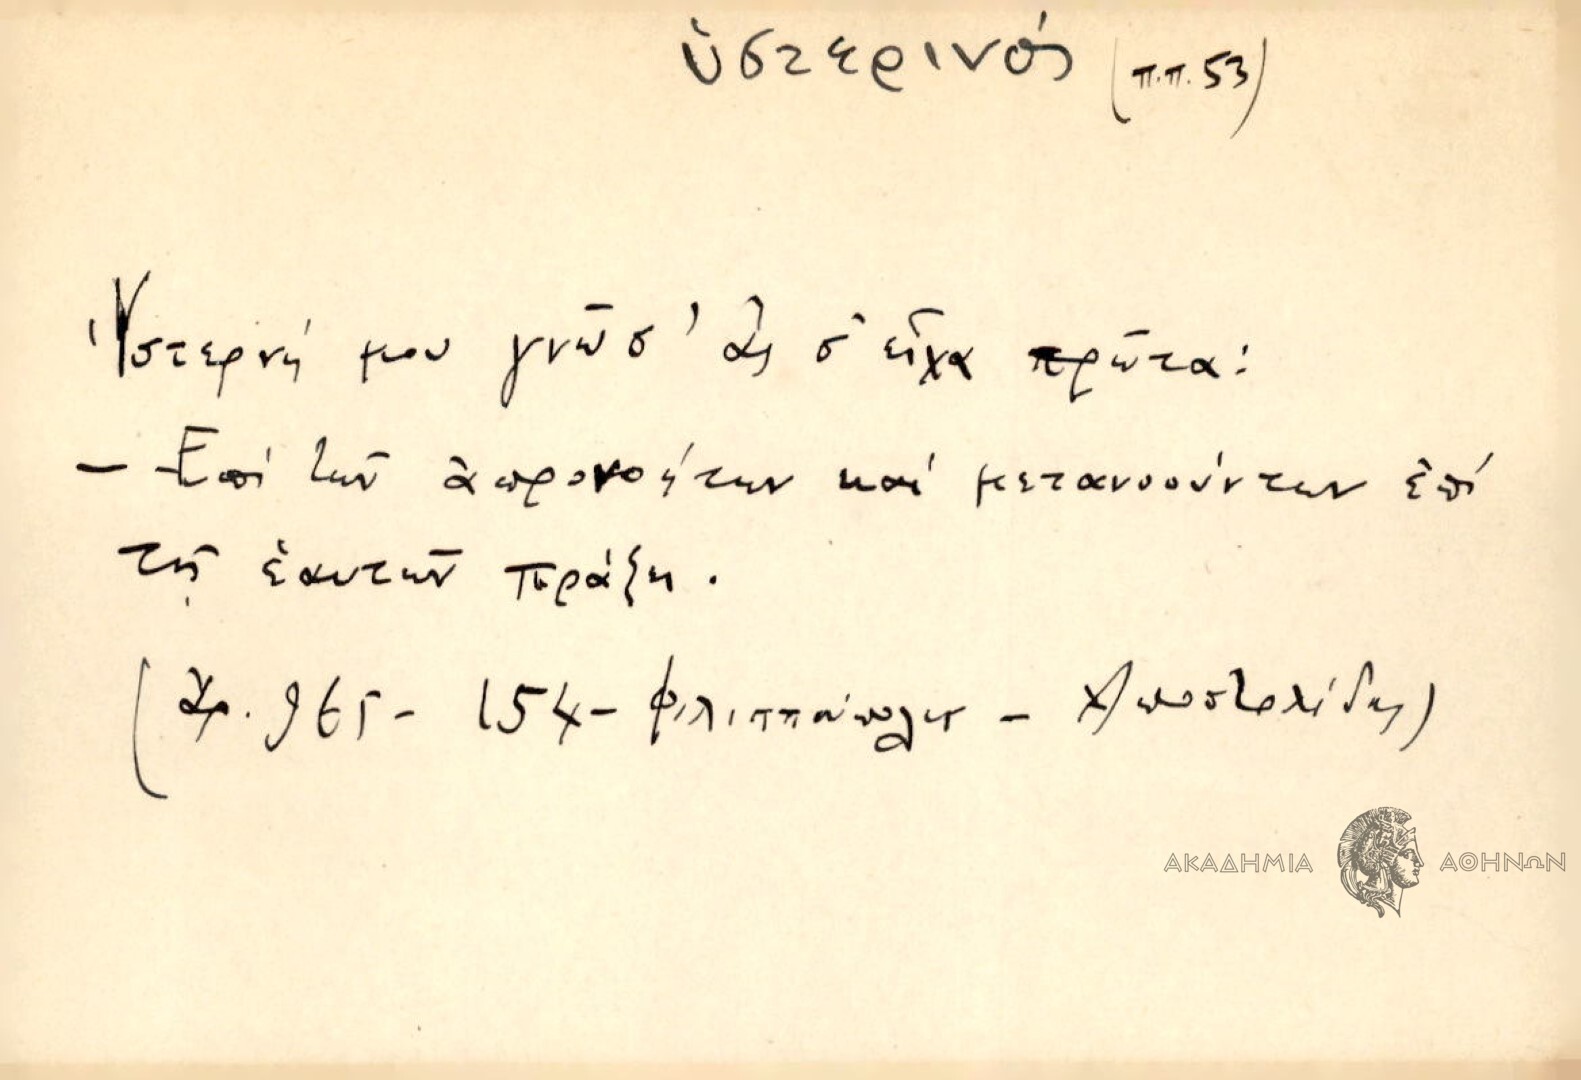 ὑστερινός (π.π. 53)
Ὑστερνή μου γνῶσ' ἂς σ' εἶχα πρῶτα:
— Ἐπί τῶν ἀπρονοήτων καί μετανοούντων ἐπί
τῇ ἑαυτῶν πράξει.
(Ἀρ. 965 - 154 - Φιλιππούπολις - Ἀποστολίδης)
ΑΚΑΔΗΜΙΑ ΑΘΗΝΩΝ